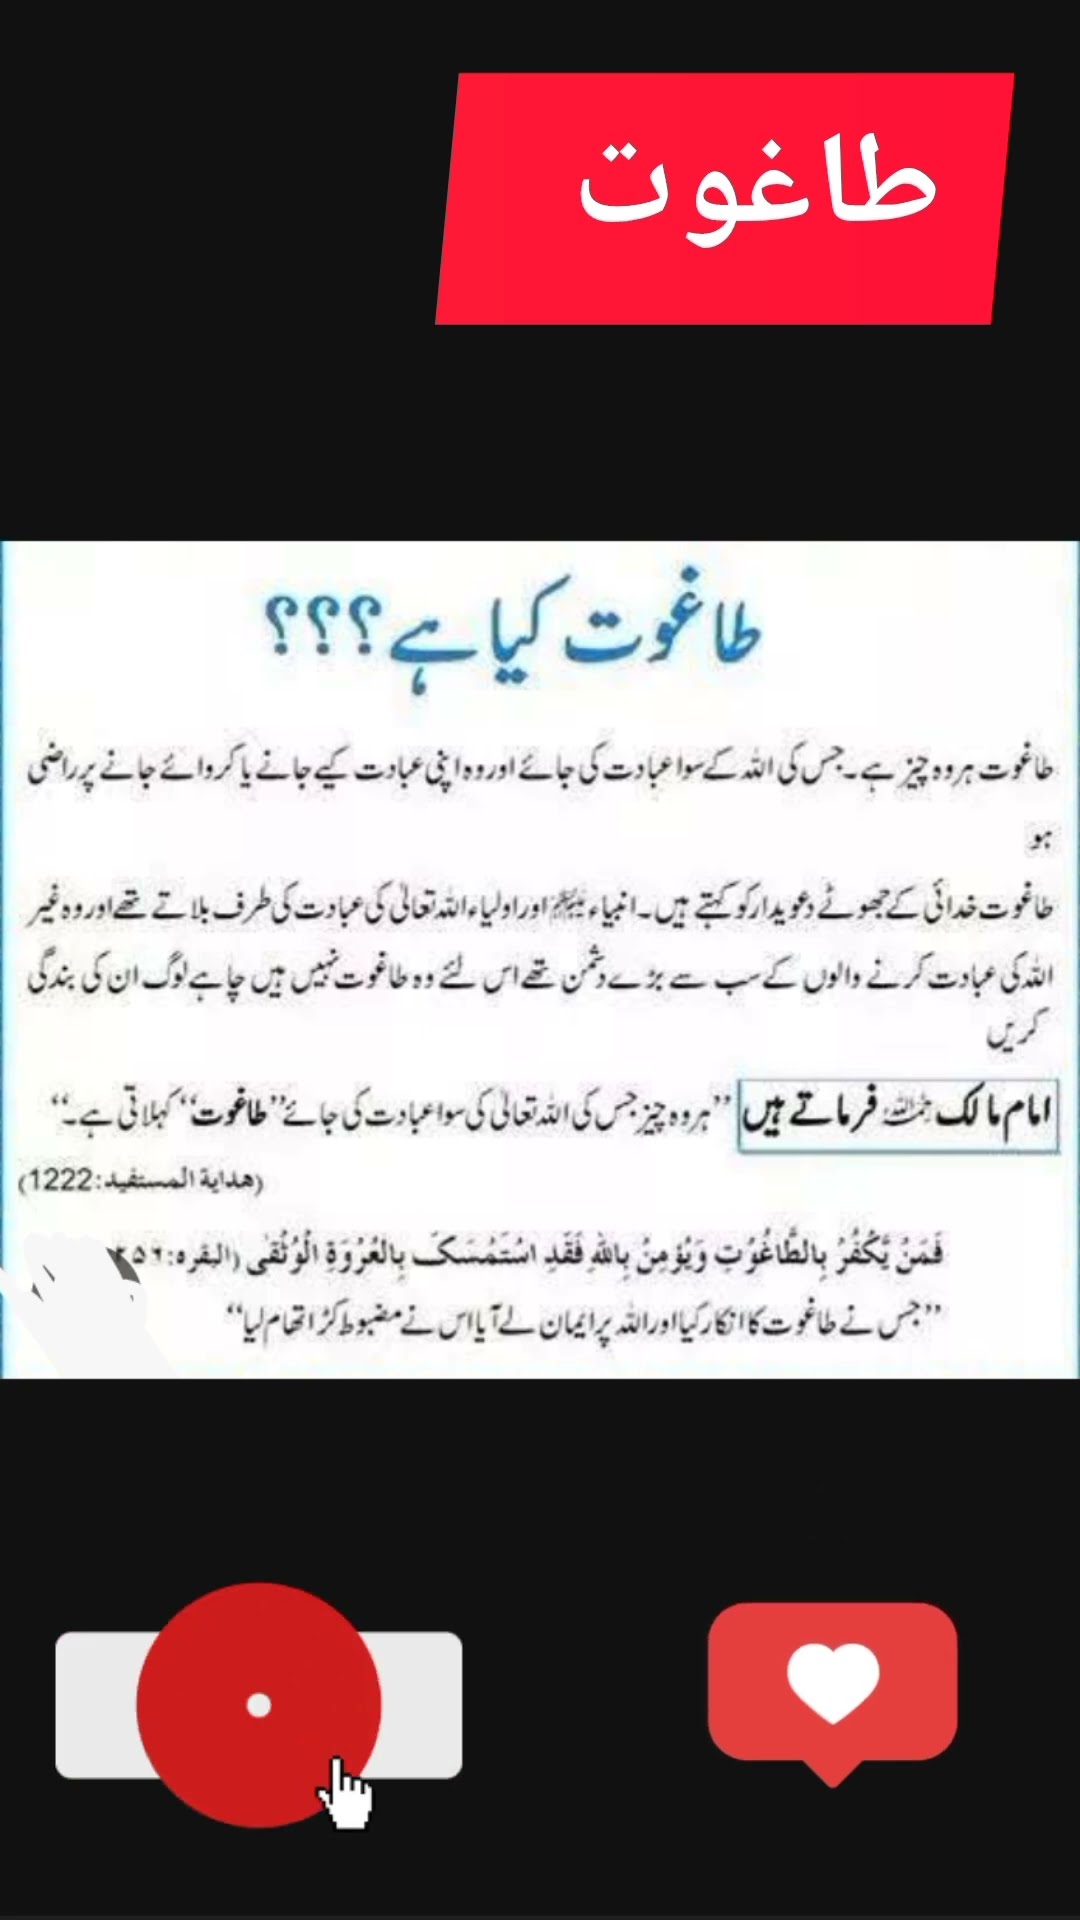 طاغوت
طاغوت کیا ہے؟؟؟
طاغوت ہر وہ چیز ہے۔ جس کی اللہ کے سوا عبادت کی جائے اور وہ اپنی عبادت کیے جانے یا کروائے جانے پر راضی
ہو
طاغوت خدائی کے جھوٹے دعویدار کو کہتے ہیں۔ انبیاء اور اولیاء اللہ تعالیٰ کی عبادت کی طرف بلاتے تھے اور وہ غیر
اللہ کی عبادت کرنے والوں کے سب سے بڑے دشمن تھے اس لئے وہ طاغوت نہیں ہیں چاہے لوگ ان کی بندگی
کریں
امام مالک رحمہ اللہ فرماتے ہیں ”ہر وہ چیز جس کی اللہ تعالیٰ کی سوا عبادت کی جائے ”طاغوت“ کہلاتی ہے۔“
(هداية المستفيد:1222)
فَمَنْ يَّكْفُرُ بِالطَّاغُوْتِ وَيُؤْمِنْ بِاللهِ فَقَدِ اسْتَمْسَکَ بِالْعُرْوَةِ الْوُثْقٰى (البقره:۲۵۶
”جس نے طاغوت کا انکار کیا اور اللہ پر ایمان لے آیا اس نے مضبوط کڑا تھام لیا“